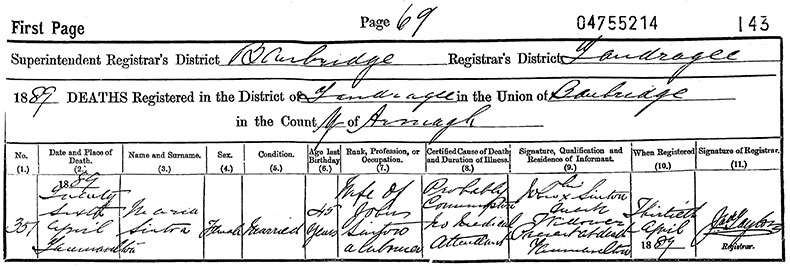 First Page
Page 69
04755214
143
Superintendent Registrar's District Banbridge Registrar's District Tandragee
1889 DEATHS Registered in the District of Tandragee in the Union of Banbridge
in the County of Armagh
No. (1.)
Date and Place of Death. (2.)
Name and Surname. (3.)
Sex. (4.)
Condition. (5.)
Age last Birthday (6.)
Rank, Profession, or Occupation. (7.)
Certified Cause of Death and Duration of Illness. (8.)
Signature, Qualification and Residence of Informant. (9.)
When Registered (10.)
Signature of Registrar. (11.)
357
1889
Twenty
Sixth
April
Maria
Sinton
Female
Married
45
Years
Wife of
John
Sinton
a labourer
Probably
Consumption
no medical
Attendant
John x Sinton
mark
Present at death
Thirtieth
April
1889
Jas Taylor
Registrar.